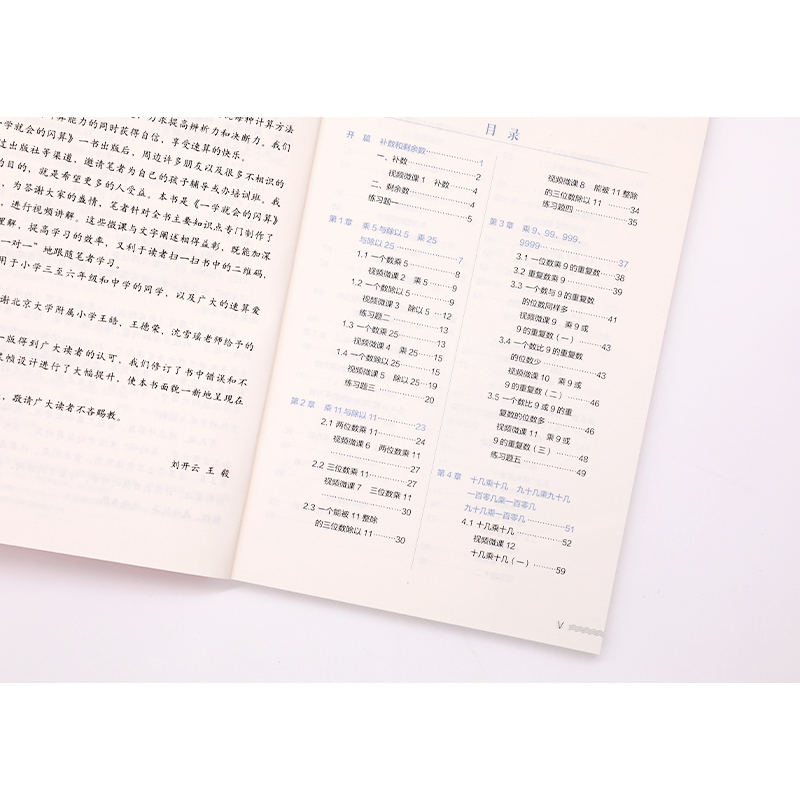 每种计算方法
算能力的同时获得自信，享受速算的快乐。我们
学就会的闪算》一书出版后，周边许多朋友以及很多不相识的
过出版社等渠道，邀请笔者为自己的孩子辅导或办培训班。我
的目的，就是希望更多的人受益。本书是《一学就会的闪算》
，为答谢大家的盛情，笔者针对全书主要知识点专门制作了
，进行视频讲解。这些微课与文字阐述相得益彰，既能深
理解，提高学习的效率，又利于读者扫一扫书中的二维码，
一对一"地跟随笔者学习。
用于小学三至六年级和中学的同学，以及广大的速算爱
谢北京大学附属小学王皓、王德荣、沈雪瑶老师给予的
一版得到广大读者的认可。我们修订了书中错误和不
帧设计进行了大幅提升，使本书面貌一新地呈现在
，敬请广大读者不吝赐教。
刘开云 王 毅
目 录
开 篇 补数和剩余数……1
一、补数……2
视频微课 1 补数……4
二、剩余数……4
练习题一……5
第 1 章 乘 5 与除以 5 乘 25
与除以 25……7
1.1 一个数乘 5……8
视频微课 2 乘 5……9
1.2 一个数除以 5……9
视频微课 3 除以 5……12
练习题二……13
1.3 一个数乘 25……13
视频微课 4 乘 25……15
1.4 一个数除以 25……15
视频微课 5 除以 25……19
练习题三……20
第 2 章 乘 11 与除以 11……23
2.1 两位数乘 11……24
视频微课 6 两位数乘 11
……27
2.2 三位数乘 11……27
视频微课 7 三位数乘 11
……30
2.3 一个能被 11 整除
的三位数除以 11……30
视频微课 8 能被 11 整除
的三位数除以 11……34
练习题四……35
第 3 章 乘 9、99、999、
9999……37
3.1 一位数乘 9 的重复数……38
3.2 重复数乘 9……39
3.3 一个数与 9 的重复数
的位数同样多……41
视频微课 9 乘 9 或
9 的重复数（一）……43
3.4 一个数比 9 的重复数
的位数少……43
视频微课 10 乘 9 或
9 的重复数（二）……46
3.5 一个数比 9 或 9 的重
复数的位数多……46
视频微课 11 乘 9 或
9 的重复数（三）……48
练习题五……49
第 4 章 十几乘十几 九十几乘九十几
一百零几乘一百零几
九十几乘一百零几……51
4.1 十几乘十几……52
视频微课 12
十几乘十几（一）……59
V